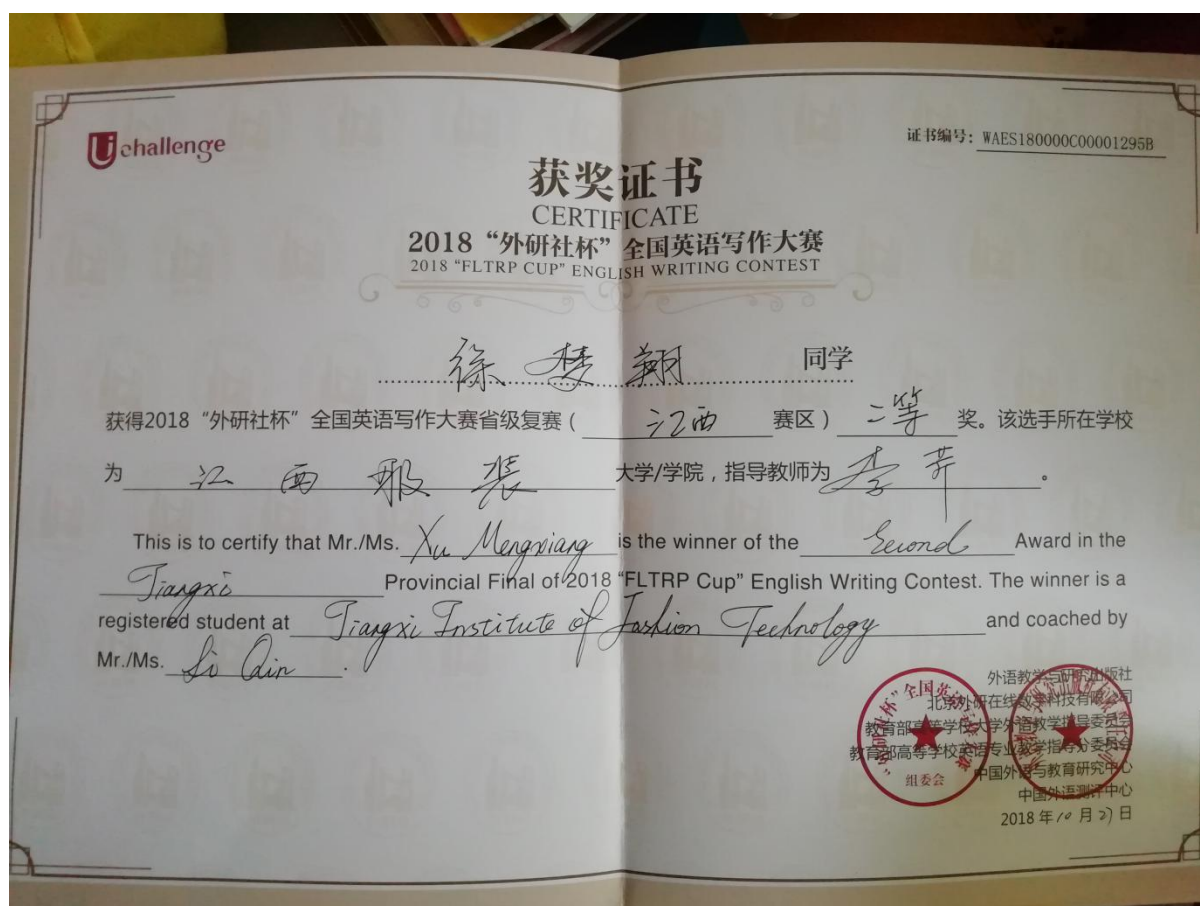 Uchallenge
证书编号：WAES180000C00001295B
获奖证书
CERTIFICATE
2018“外研社杯”全国英语写作大赛
2018 “FLTRP CUP” ENGLISH WRITING CONTEST
徐梦翔 同学
获得2018“外研社杯”全国英语写作大赛省级复赛（江西赛区）二等奖。该选手所在学校
为江西服装大学/学院，指导教师为李芹。
This is to certify that Mr./Ms. Xu Mengxiang is the winner of the Second Award in the
Jiangxi Provincial Final of 2018 “FLTRP Cup” English Writing Contest. The winner is a
registered student at Jiangxi Institute of Fashion Technology and coached by
Mr./Ms. Li Qin.
外语教学与研究出版社
北京外研在线教育科技有限公司
教育部高等学校大学外语教学指导委员会
教育部高等学校英语专业教学指导分委员会
中国外语与教育研究中心
中国外语测评中心
2018年10月27日
组委会